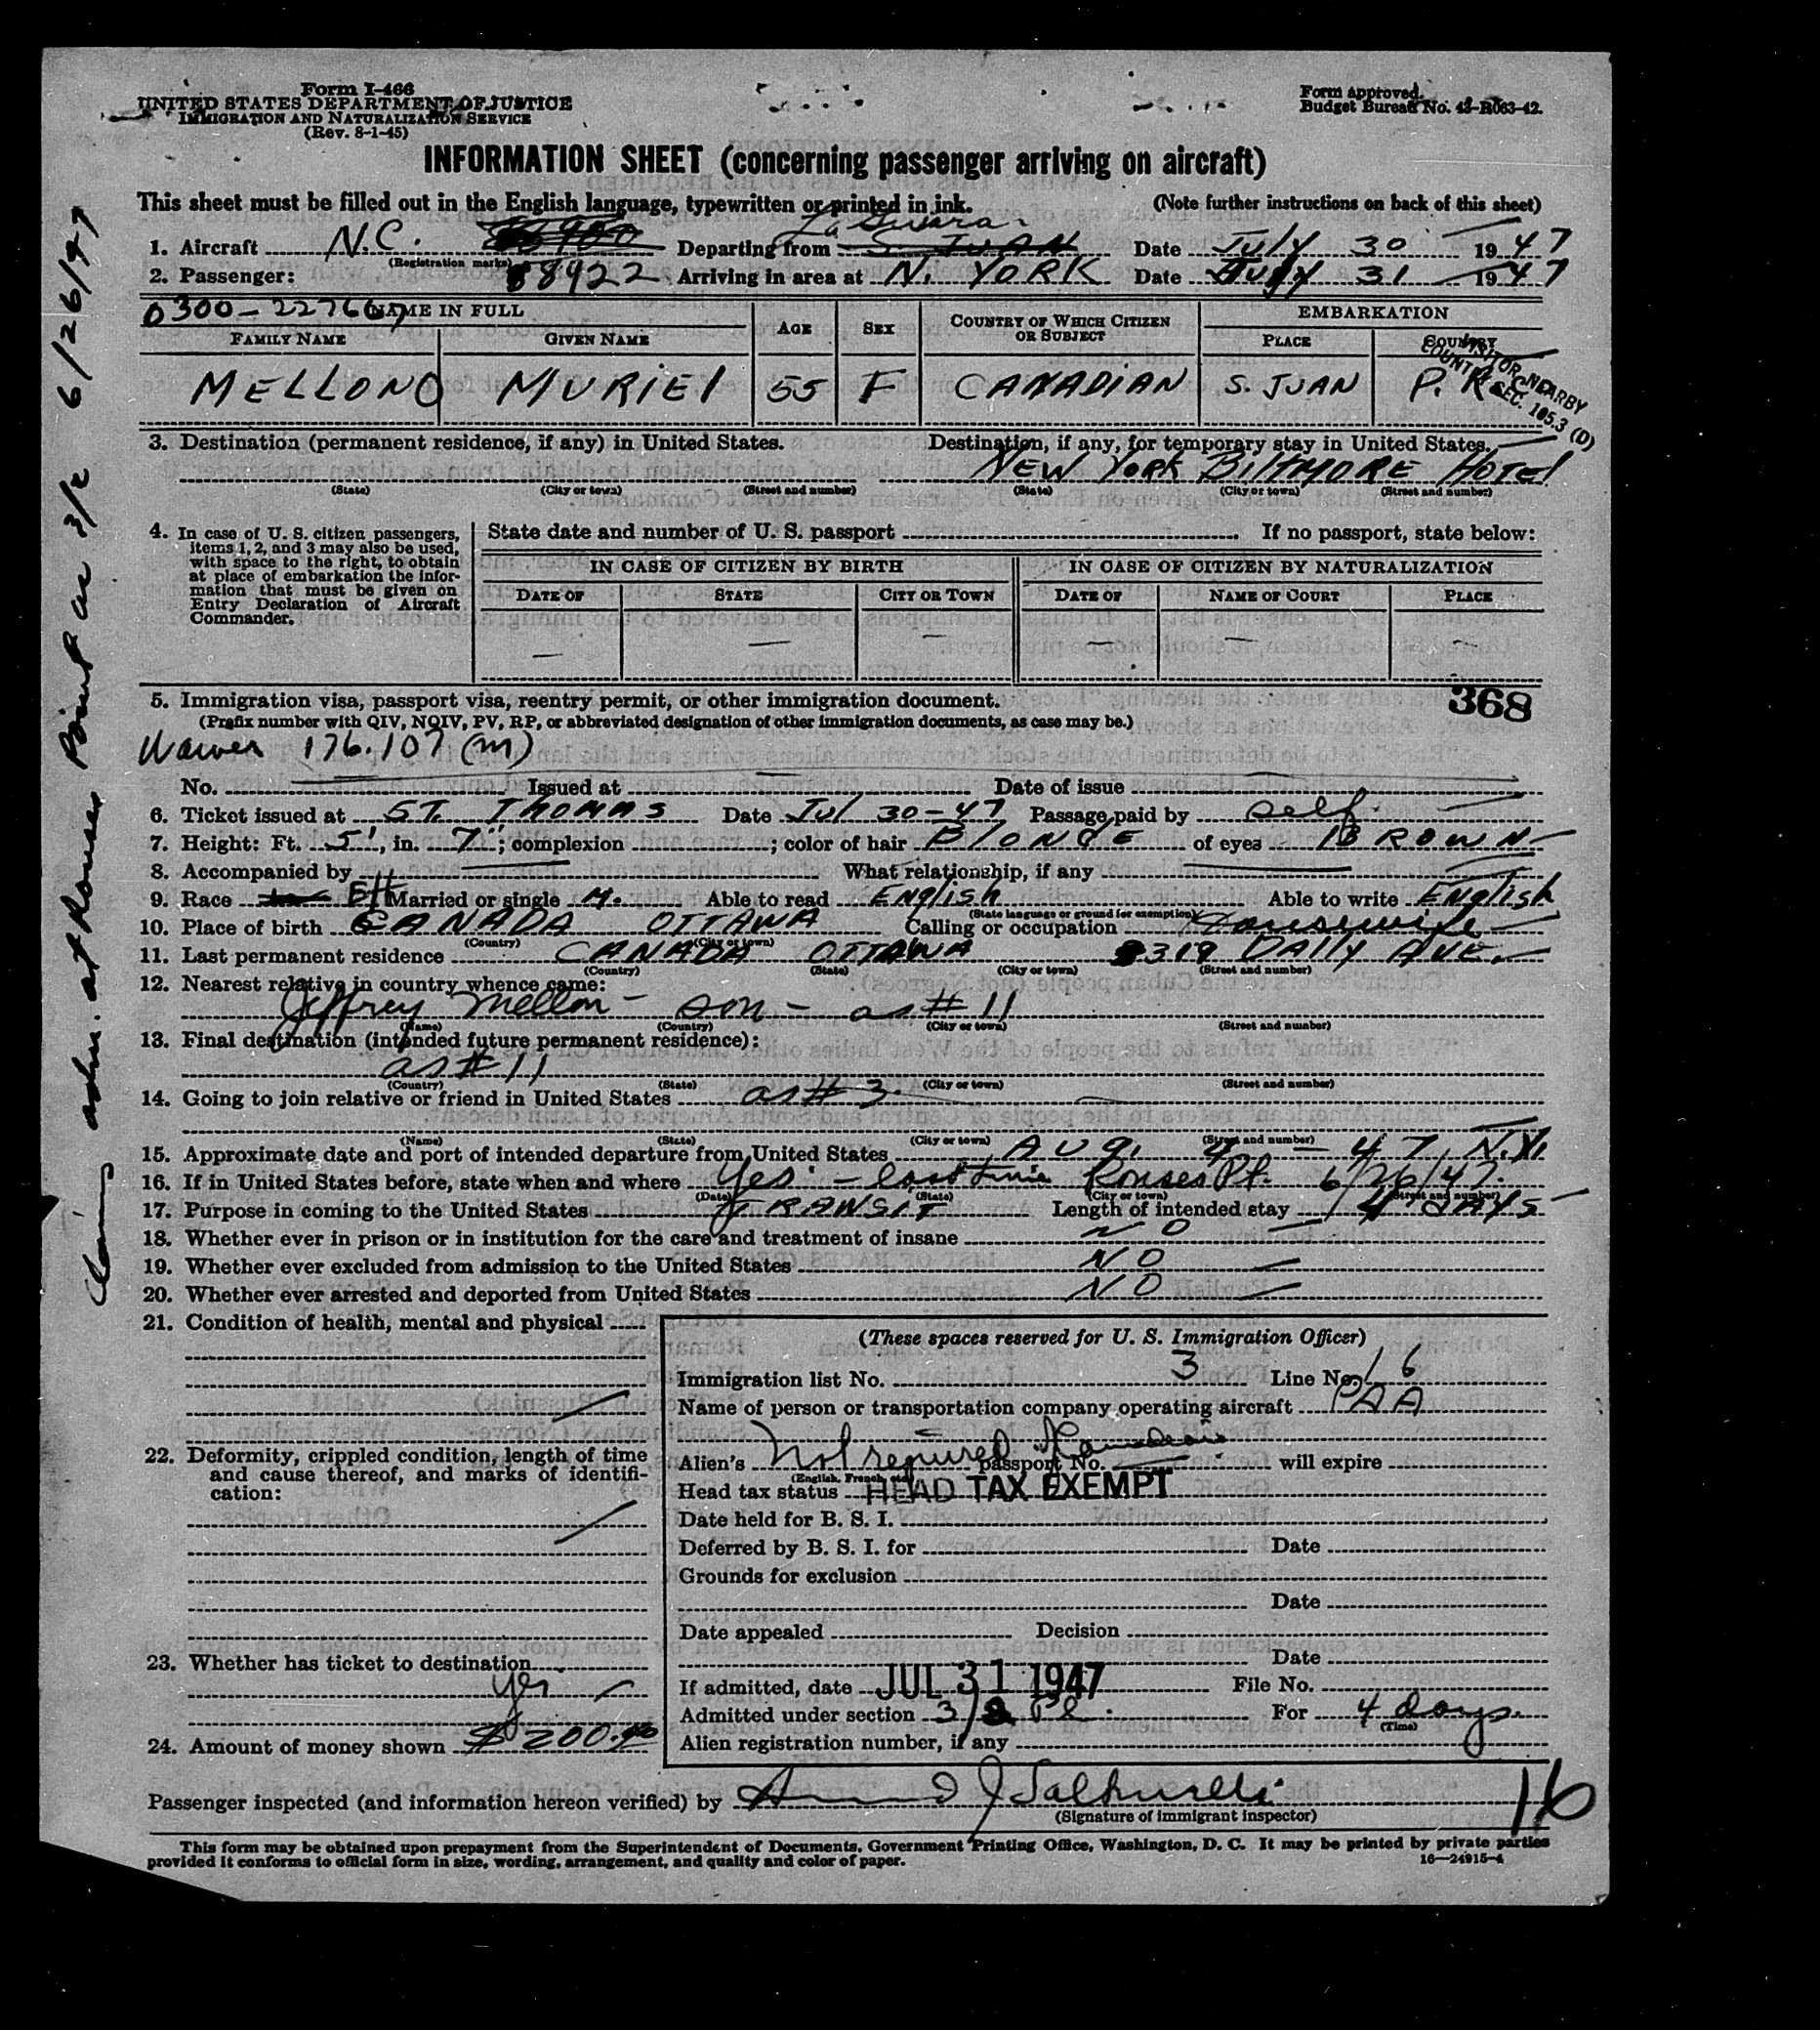 Form I-466
UNITED STATES DEPARTMENT OF JUSTICE
IMMIGRATION AND NATURALIZATION SERVICE
(Rev. 8-1-45)
Form approved.
Budget Bureau No. 43-R063-42.
INFORMATION SHEET (concerning passenger arriving on aircraft)
This sheet must be filled out in the English language, typewritten or printed in ink. (Note further instructions on back of this sheet)
1. Aircraft N.C. Departing from S. JUAN La Guara Date July 30 1947
(Registration marks)
2. Passenger: 88922 Arriving in area at N. YORK Date July 31 1947
0300-227667 NAME IN FULL AGE SEX COUNTRY OF WHICH CITIZEN OR SUBJECT EMBARKATION
FAMILY NAME GIVEN NAME PLACE COUNTRY
MELLON MURIEL 55 F CANADIAN S. JUAN P.R.
VISITOR NEARBY
COUNTRY SEC. 165.3 (D)
3. Destination (permanent residence, if any) in United States. Destination, if any, for temporary stay in United States.
NEW YORK BILTMORE HOTEL
(State) (City or town) (Street and number) (State) (City or town) (Street and number)
4. In case of U. S. citizen passengers, items 1, 2, and 3 may also be used, with space to the right, to obtain at place of embarkation the information that must be given on Entry Declaration of Aircraft Commander.
State date and number of U. S. passport If no passport, state below:
IN CASE OF CITIZEN BY BIRTH IN CASE OF CITIZEN BY NATURALIZATION
DATE OF STATE CITY OR TOWN DATE OF NAME OF COURT PLACE
5. Immigration visa, passport visa, reentry permit, or other immigration document. 368
(Prefix number with QIV, NQIV, PV, RP, or abbreviated designation of other immigration documents, as case may be.)
Waiver 176.107 (m)
No. Issued at Date of issue
6. Ticket issued at ST. THOMAS Date Jul 30-47 Passage paid by self
7. Height: Ft. 5', in. 7"; complexion ; color of hair BLONDE of eyes BROWN
8. Accompanied by What relationship, if any
9. Race Married or single M. Able to read English Able to write English
(State language or ground for exemption)
10. Place of birth CANADA OTTAWA Calling or occupation Housewife
(Country) (City or town)
11. Last permanent residence CANADA OTTAWA 319 DALLY AVE.
(Country) (State) (City or town) (Street and number)
12. Nearest relative in country whence came:
Jeffrey Mellon - son - as # 11
(Name) (Country) (City or town) (Street and number)
13. Final destination (intended future permanent residence):
as # 11
(Country) (State) (City or town) (Street and number)
14. Going to join relative or friend in United States as # 3.
(Name) (State) (City or town) (Street and number)
15. Approximate date and port of intended departure from United States AUG. 4 - 47, N.Y.
16. If in United States before, state when and where Yes - last time Rouses Pt. 6/26/47.
(Date) (State) (City or town) (Street and number)
17. Purpose in coming to the United States TRANSIT Length of intended stay 4 DAYS
18. Whether ever in prison or in institution for the care and treatment of insane NO
19. Whether ever excluded from admission to the United States NO
20. Whether ever arrested and deported from United States NO
21. Condition of health, mental and physical
22. Deformity, crippled condition, length of time and cause thereof, and marks of identification:
23. Whether has ticket to destination
yes
24. Amount of money shown $ 200.00
(These spaces reserved for U. S. Immigration Officer)
Immigration list No. 3 Line No. 16
Name of person or transportation company operating aircraft PAA
Alien's Not required Canadian passport No. will expire
(English, French, etc.)
Head tax status HEAD TAX EXEMPT
Date held for B. S. I.
Deferred by B. S. I. for Date
Grounds for exclusion
Date
Date appealed Decision
Date
If admitted, date JUL 31 1947 File No.
Admitted under section 3/2 For 4 days.
(Time)
Alien registration number, if any
Passenger inspected (and information hereon verified) by
(Signature of immigrant inspector)
16
This form may be obtained upon prepayment from the Superintendent of Documents, Government Printing Office, Washington, D. C. It may be printed by private parties
provided it conforms to official form in size, wording, arrangement, and quality and color of paper. 16—24915-4
Claims adm. at Rouses Point as 3/2 6/26/47